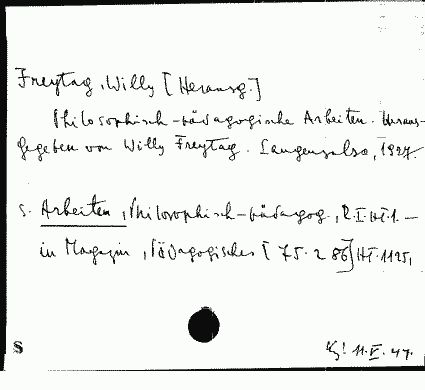 Freytag, Willy [Herausg.]
Philosophisch-pädagogische Arbeiten. Heraus-
gegeben von Willy Freytag. Langensalza, 1927.
s. Arbeiten, Philosophisch-pädagog., R.I. Ht.1. —
in Magazin, Pädagogisches [75.286] Ht. 1125,
S
11.V.47.